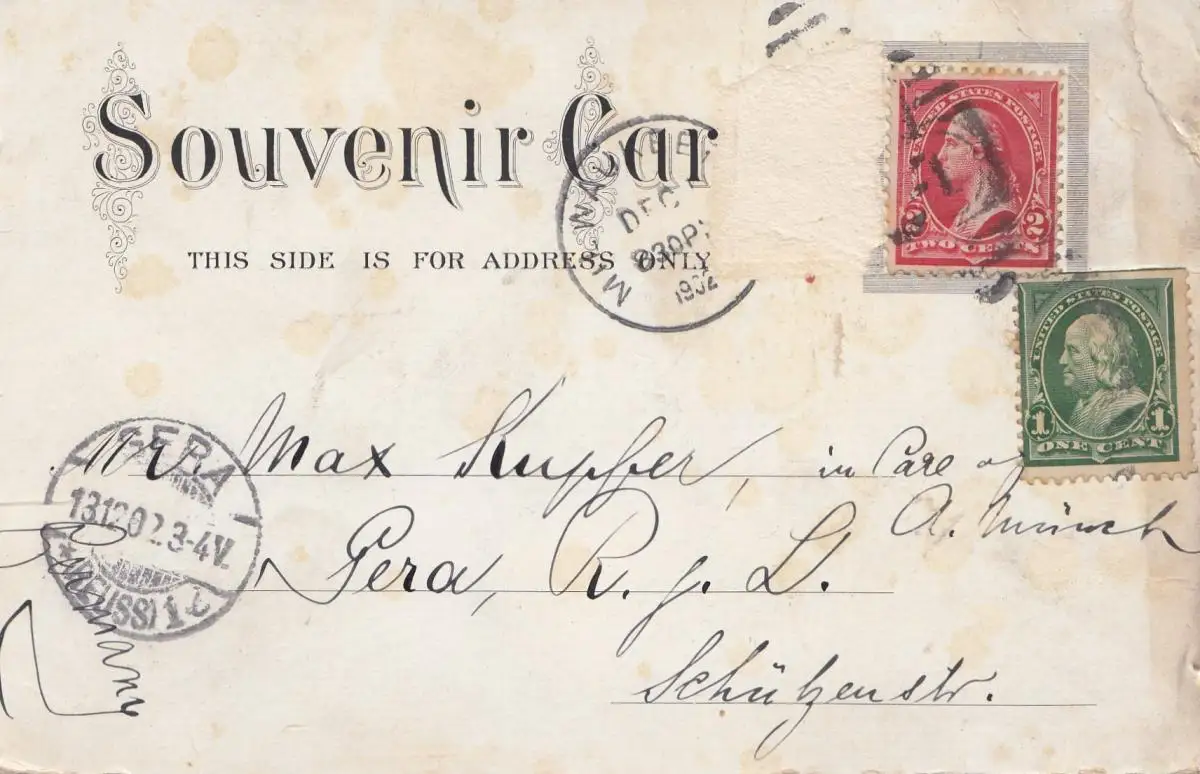 Souvenir Car
THIS SIDE IS FOR ADDRESS ONLY
MILWAUKEE
DEC
830PM
1902
UNITED STATES POSTAGE
2 2
TWO CENTS
UNITED STATES POSTAGE
1 1
ONE CENT
Mr. Max Kupfer, in Care of
A. Münch
Gera, R. j. L.
Schützenstr.
Germany
GERA
13.12.02.3-4V.
(REUSS)